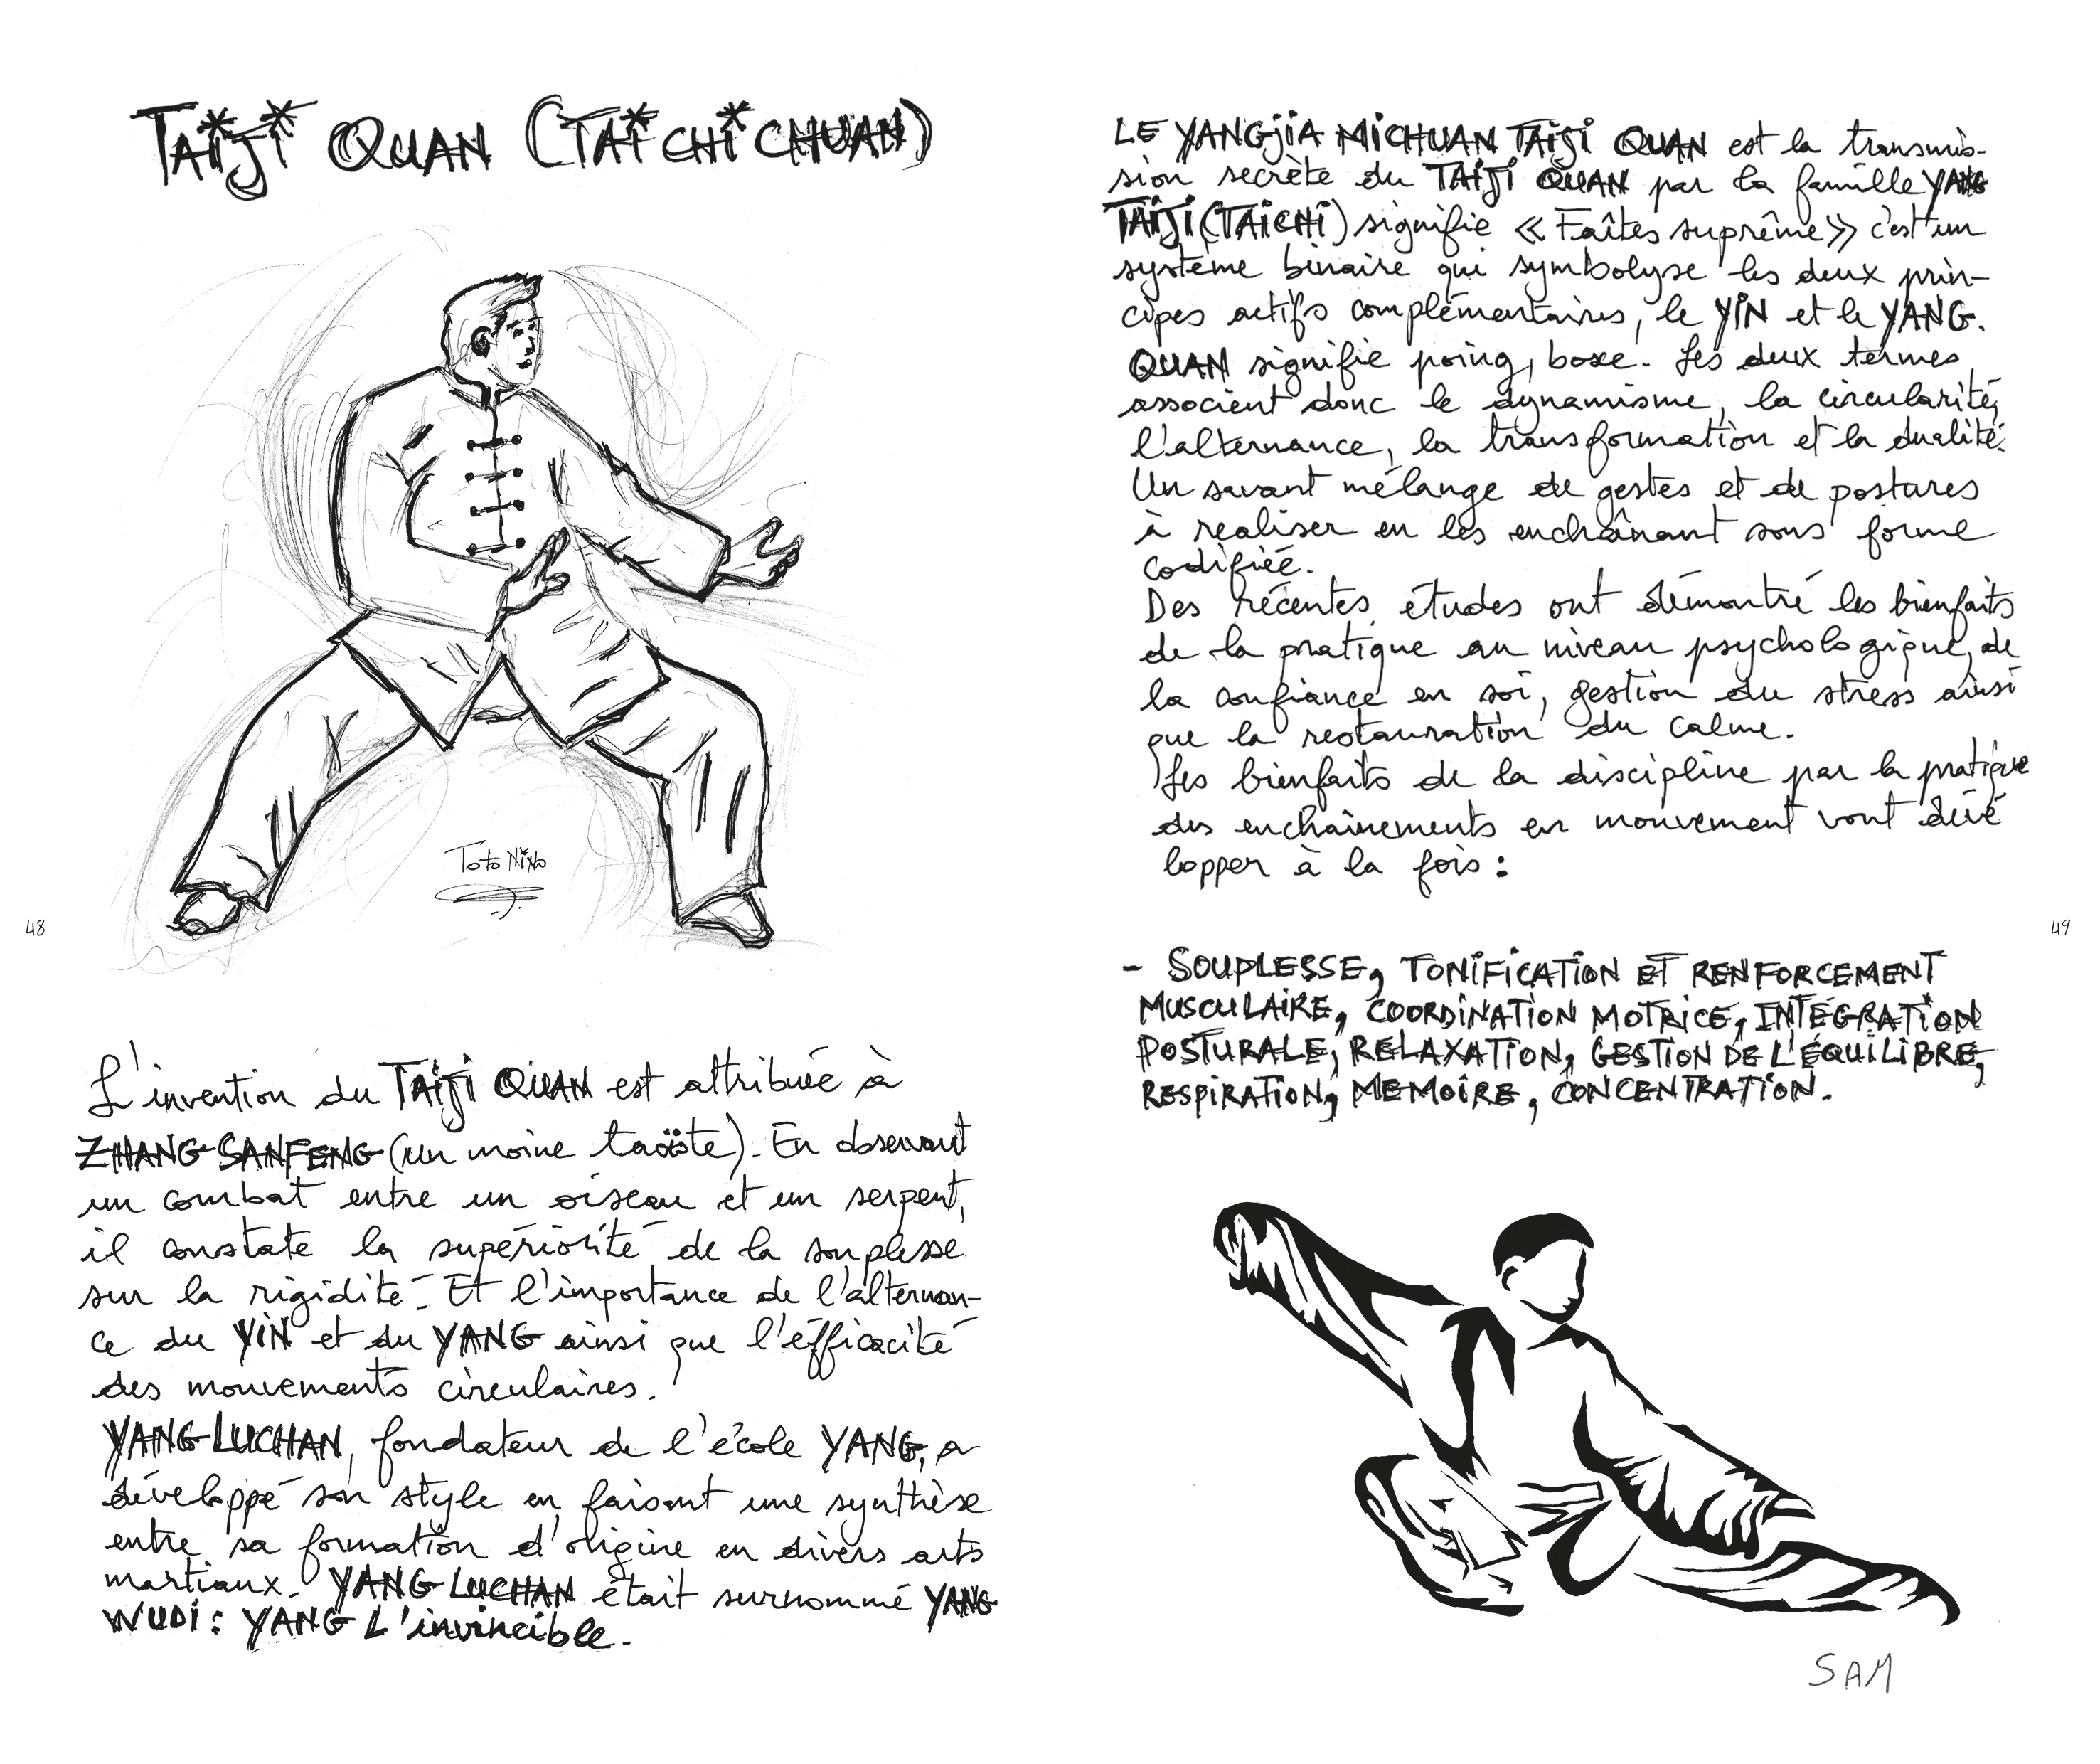 TAiJi QUAN (TAi CHi CHUAN)
Toto NiNo
48
L'invention du TAiJi QUAN est attribuée à
ZHANG SANFENG (un moine taoïste). En observant
un combat entre un oiseau et un serpent,
il constate la supériorité de la souplesse
sur la rigidité. Et l'importance de l'alternan-
ce du YiN et du YANG ainsi que l'éfficacité
des mouvements circulaires.
YANG LUCHAN, fondateur de l'école YANG, a
développé son style en faisant une synthèse
entre sa formation d'origine en divers arts
martiaux. YANG LUCHAN était surnommé YANG
WUDi : YANG L'invincible.
LE YANGJiA MiCHUAN TAiJi QUAN est la transmis-
sion secrète du TAiJi QUAN par la famille YANG
TAiJi (TAiCHi) signifie « Faîtes suprême » c'est un
système binaire qui symbolyse les deux prin-
cipes actifs complémentaires, le YiN et le YANG.
QUAN signifie poing, boxe. Les deux termes
associent donc le dynamisme, la circularité,
l'alternance, la transformation et la dualité.
Un savant mélange de gestes et de postures
à realiser en les enchaînant sous forme
codifiée.
Des récentes études ont démontré les bienfaits
de la pratique au niveau psychologique, de
la confiance en soi, gestion du stress ainsi
que la restauration du calme.
Les bienfaits de la discipline par la pratique
des enchaînements en mouvement vont dévé
lopper à la fois :
49
- SOUPLESSE, TONiFiCATiON ET RENFORCEMENT
MUSCULAiRE, COORDiNATiON MOTRiCE, INTÉGRATiON
POSTURALE, RELAXATiON, GESTiON DE L'ÉQUiLiBRE,
RESPiRATiON, MEMOiRE, CONCENTRATiON.
SAM